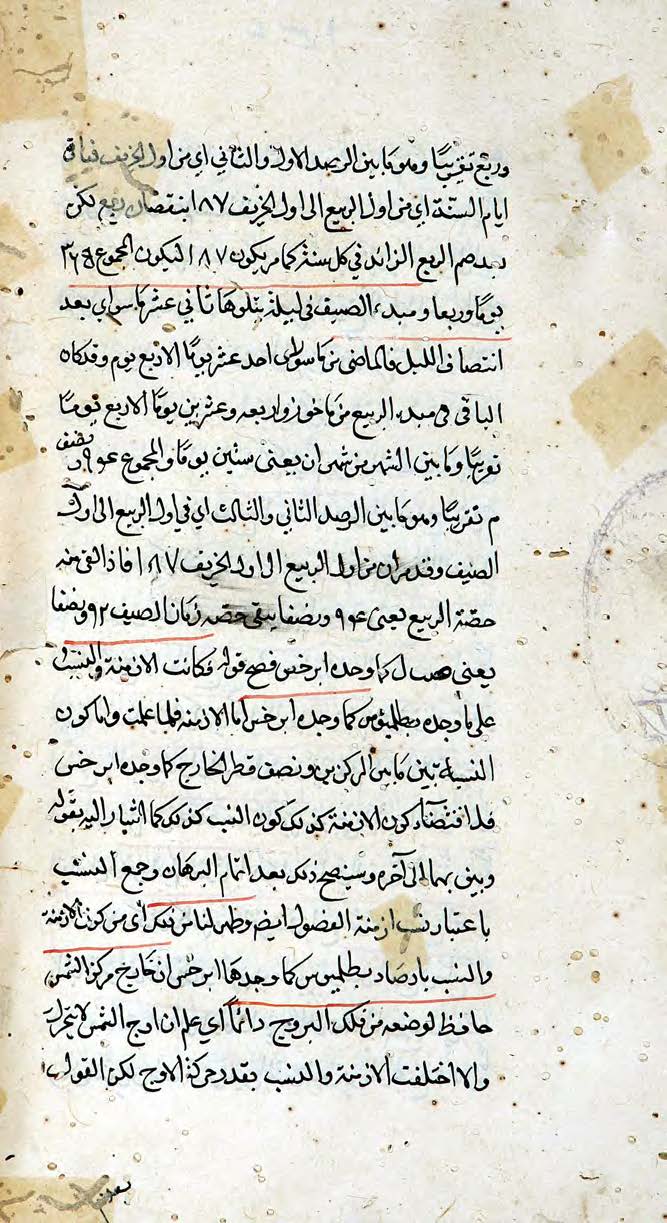 وربع تقريبا وهو ما بين الرصد الاول والثاني اي من اول الخريف فباقي
ايام السنة اي من اول الربيع الى اول الخريف ١٨٧ بنقصان ربع لكن
بعد ضم الربع الزائد في كل سنة كما مر يكون ١٨٧ ليكون المجموع ٣٦٥
يوما وربعا ومبدء الصيف في ليلة يتلوها ثاني عشر ماسواي بعد
انتصاف الليل فالماضي من ماسواي احد عشر يوما الا ربع يوم وقد كان
الباقي في مبدء الربيع من ماخور اربعه وعشرين يوما الا ربع يوما
تقريبا وما بين الشهرين شهران يعني ستين يوما والمجموع ٩٤ ونصف
م تقريبا وهو ما بين الرصد الثاني والثالث اي في اول الربيع الى اول
الصيف وقد مر ان من اول الربيع الى اول الخريف ١٨٧ فاذا القي منه
حصة الربيع يعني ٩٤ ونصفا يبقى حصه زمان الصيف ٩٢ ونصفا
يعني كما وجده ابرخس فصح قوله فكانت الازمنة والنسب
على ما وجده بطلميوس كما وجده ابرخس اما الازمنه فلما علمت واما كون
النسبة بين ما بين المركزين ونصف قطر الخارج كما وجده ابرخس
فلاقتضاء كون الازمنة كذلك كون النسب كذلك كما اشار اليه بقوله
وبين بهما الى آخره وسيتضح ذلك بعد اتمام البرهان وجمع النسب
باعتبار نسب ازمنة الفصول ايضا وظهر لنا من ذلك اى من كون الازمنة
والنسب بارصاد بطلميوس كما وجدها ابرخس ان خارج مركز الشمس
حافظ لوضعه من فلك البروج دائما اي علم ان اوج الشمس لا يتحرك
والا اختلفت الازمنة والنسب بقدر حركة الاوج لكن القول
بعدم